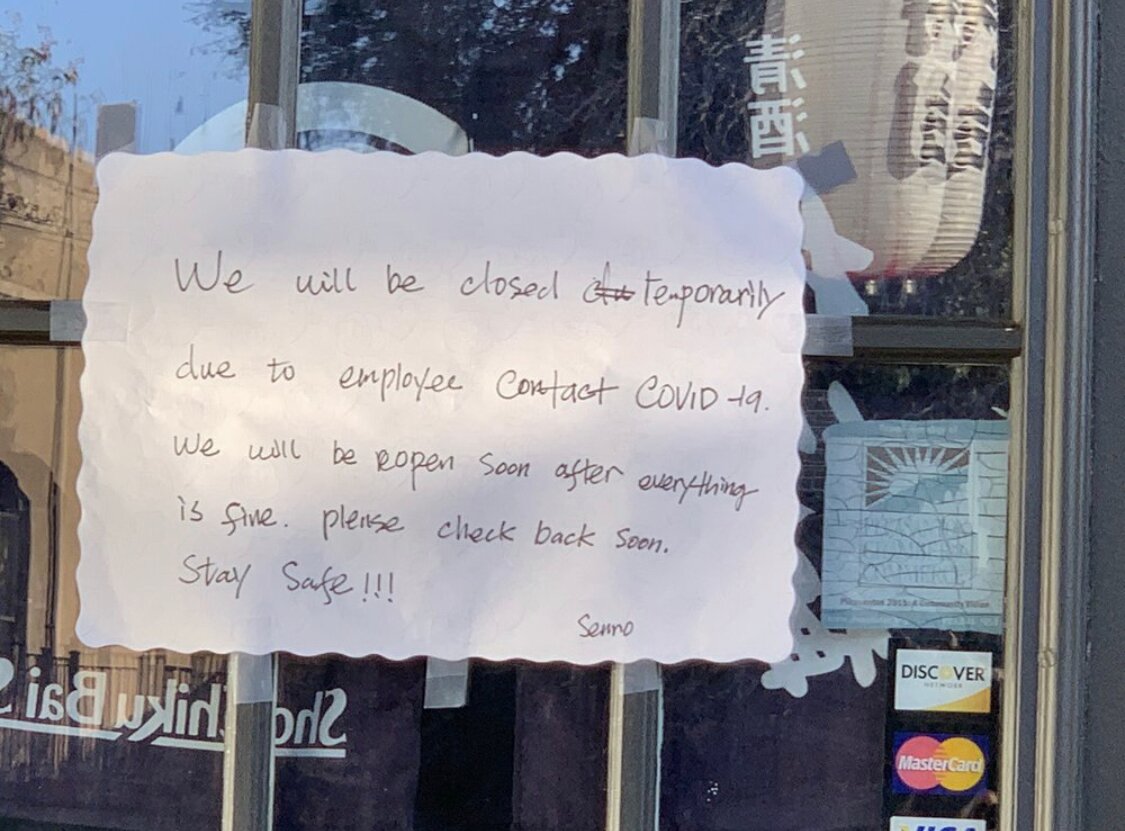 清酒
We will be closed temporarily
due to employee contact COVID-19.
We will be ropen soon after everything
is fine. please check back soon.
Stay Safe!!!
Senno
Sho Chiku Bai S
DISCOVER
NETWORK
MasterCard
VISA